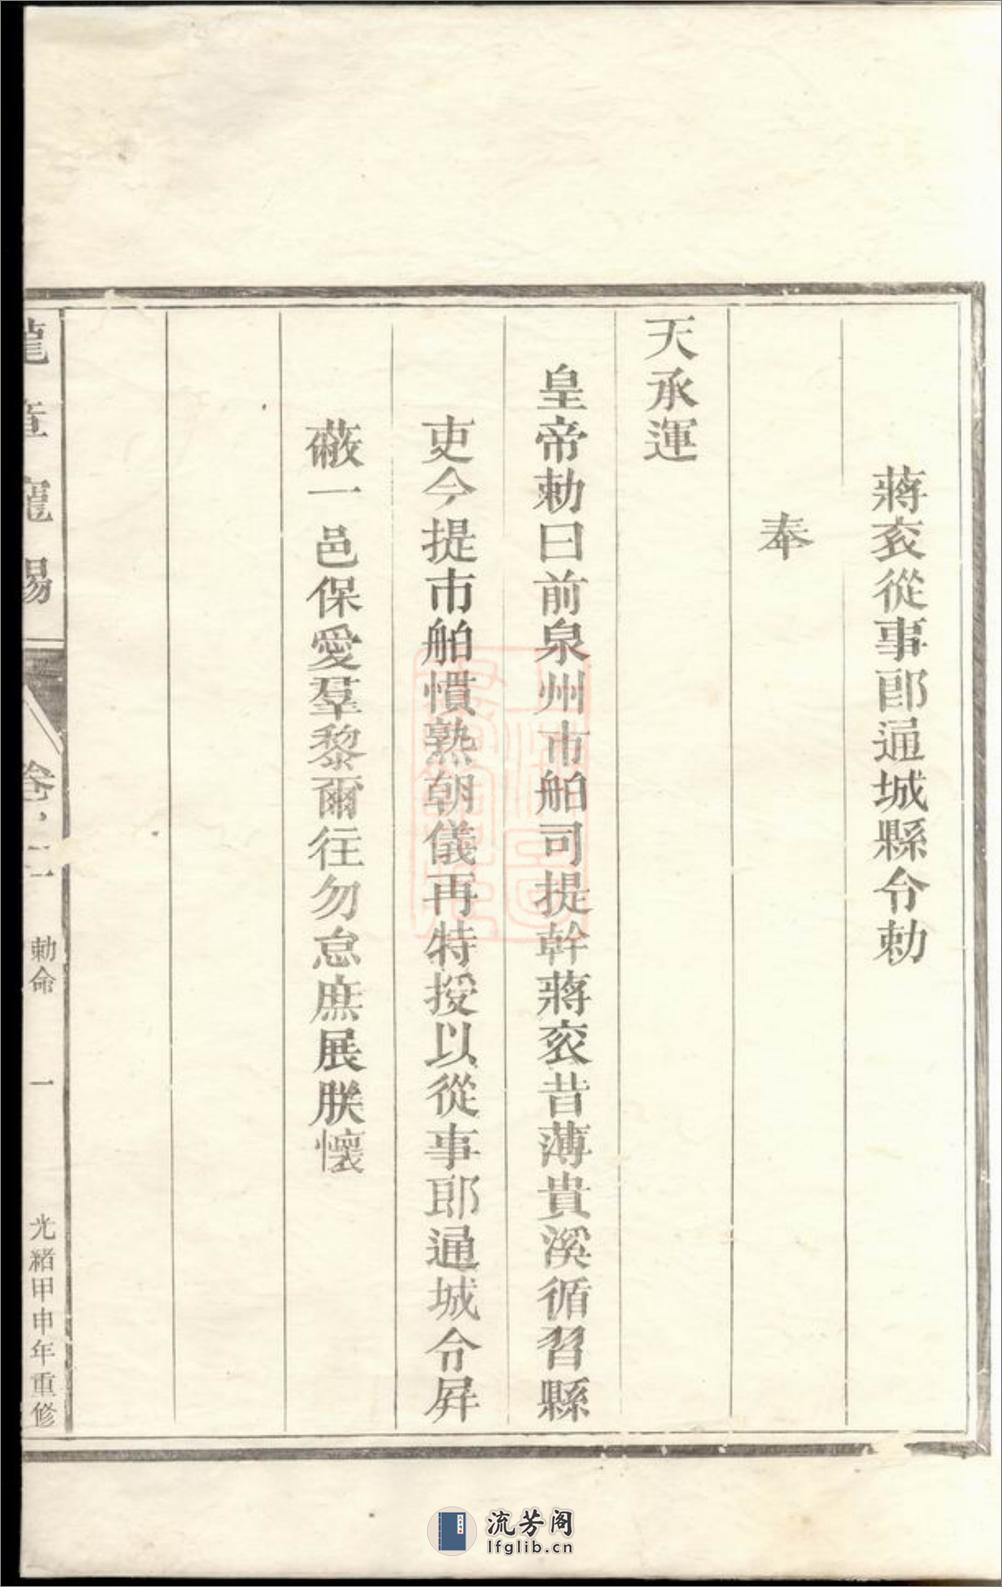 蔣袤從事郎通城縣令勅
奉
天承運
皇帝勅曰前泉州市舶司提幹蔣袤昔薄貴溪循習縣
吏今提市舶慣熟朝儀再特授以從事郎通城令屏
蔽一邑保愛羣黎爾往勿怠庶展朕懷
龍章寵錫
卷之一
勅命
一
光緒甲申年重修
流芳阁
lfglib.cn